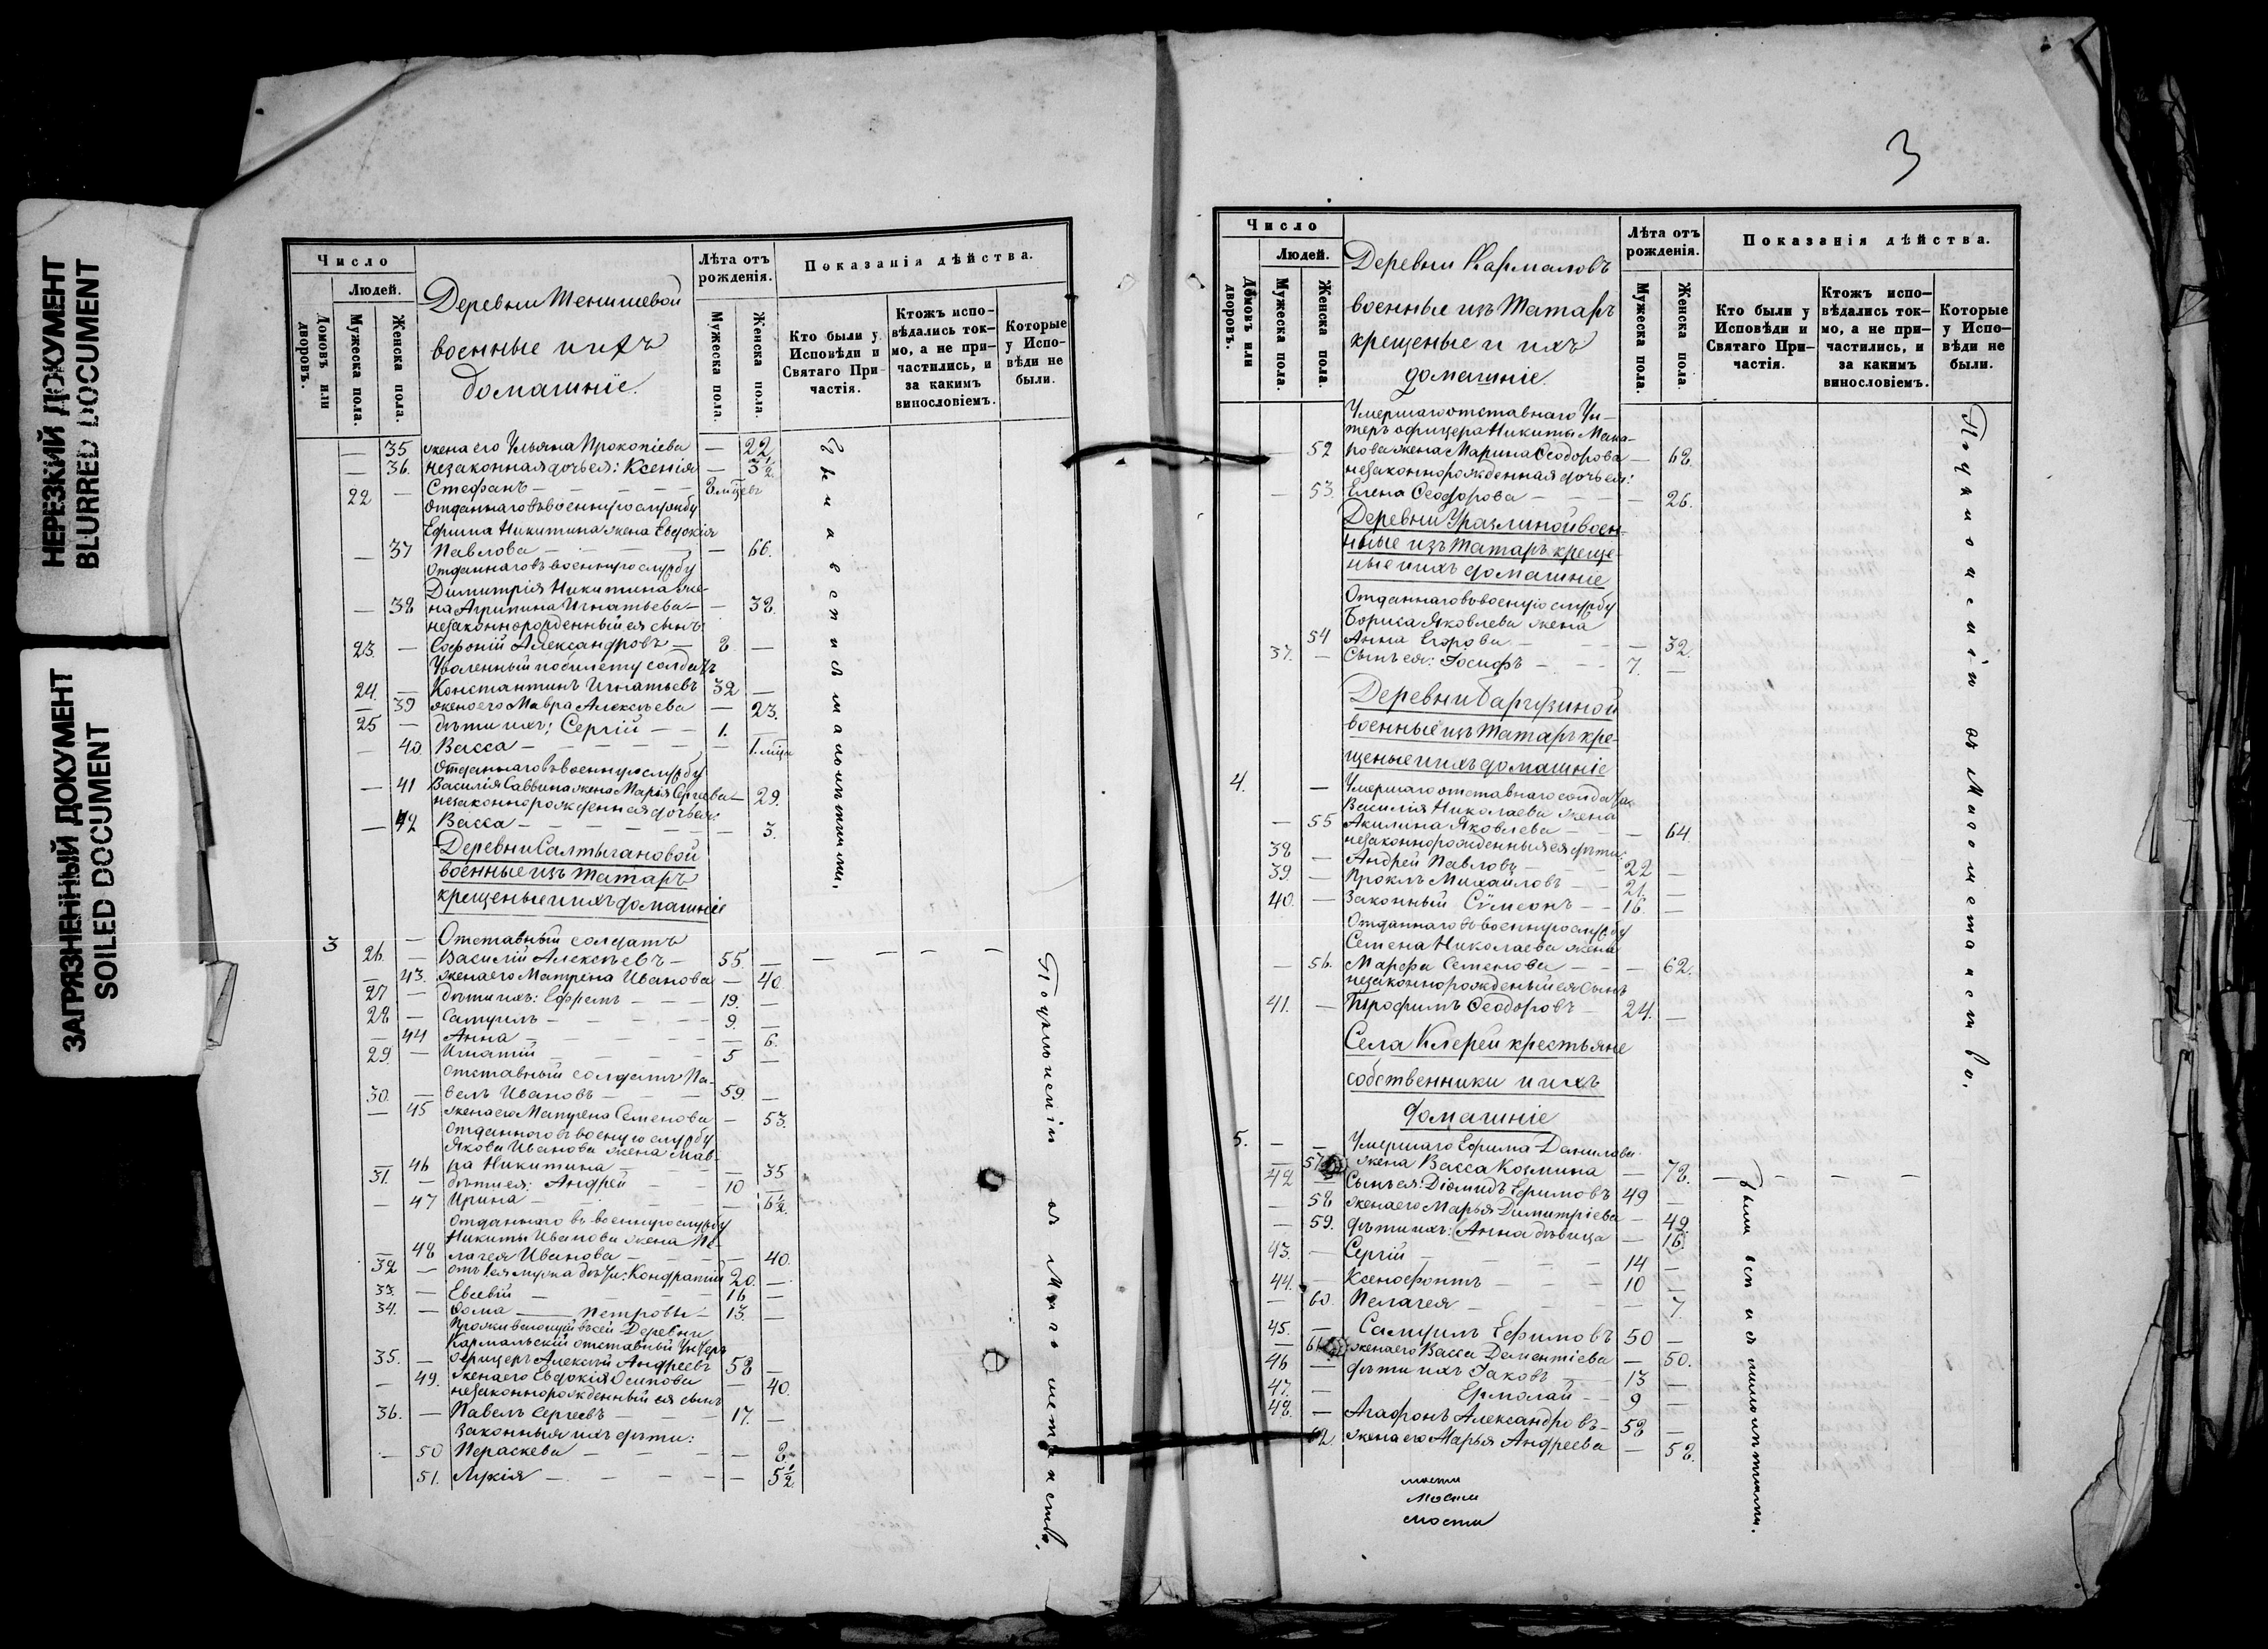 НЕРЕЗКИЙ ДОКУМЕНТ
BLURRED DOCUMENT
ЗАГРЯЗНЕННЫЙ ДОКУМЕНТ
SOILED DOCUMENT
Число
Людей.
Домовъ или дворовъ.
Мужеска пола.
Женска пола.
Деревни Тенишевой
военные и ихъ
домашніе.
Лѣта отъ рожденія.
Мужеска пола.
Женска пола.
Показанія дѣйства.
Кто были у Исповѣди и Святаго Причастія.
Ктожъ исповѣдались токмо, а не причастились, и за какимъ винословіемъ.
Которые у Исповѣди не были.
— 35 жена его Ульяна Прокопіева — 22
— 36. незаконная дочь ея: Ксенія — 3½
22 — Стефанъ — 8 мѣсцевъ
Отданнаго въ военную службу
Ефима Никитина жена Евдокія
— 37 Павлова — 66.
Отданнаго въ военную службу
Димитрія Никитина же-
— 38 на Агрипина Игнатьева — 38.
незаконнорожденный ея сынъ
23. — Софоній Александровъ — 8 —
Уволенный по билету солдатъ
24. — Константинъ Игнатьевъ 32 —
— 39 жена его Мавра Алексѣева — 23.
25 — дѣти ихъ: Сергій — 1.
— 40 Васса — 1. мѣсца
Отданнаго въ военную службу
— 41 Василія Саввина жена Марія Сергеева — 29.
незаконнорожденная дочь ея
— 42 Васса — 3.
Деревни Салтыгановой
военные изъ татаръ
крещеные и ихъ домашніе
3 — Отставный солдатъ
26. — Василій Алексѣевъ — 55. —
— 43. жена его Матрена Иванова — 40.
27 — дѣти ихъ: Ефремъ — 19. —
28 — Самуилъ — 9. —
— 44 Анна — 6.
29. — Игнатій — 5 —
Отставный солдатъ Па-
30. — велъ Ивановъ — 59. —
— 45 жена его Матрена Семенова — 53.
Отданнаго въ военную службу
Якова Иванова жена Мав-
— 46 ра Никитина — 35
31. — дѣти ея: Андрей — 10 —
— 47 Ирина — 6½.
Отданнаго въ военную службу
Никиты Иванова жена Пе-
— 48 лагея Иванова — 40.
32 — отъ 1 ея мужа дѣти: Кондратій 20. —
33. — Евсевій — 16 —
34. — Ѳома — Петровы — 13. —
Проживающій въ сей Деревни
Кармальскій отставный Унтеръ
35. — офицеръ Алексѣй Андреевъ 58 —
— 49. жена его Евдокія Осипова — 40.
незаконнорожденный ея сынъ
36. — Павелъ Сергеевъ — 17. —
Законныя ихъ дѣти:
— 50 Пераскева — 8.
51. Лукія — 5½.
По уклоненію въ Магометанство.
3
Число
Людей.
Домовъ или дворовъ.
Мужеска пола.
Женска пола.
Деревни Кармаловъ
военные изъ Татаръ
крещеные и ихъ
домашніе.
Лѣта отъ рожденія.
Мужеска пола.
Женска пола.
Показанія дѣйства.
Кто были у Исповѣди и Святаго Причастія.
Ктожъ исповѣдались токмо, а не причастились, и за какимъ винословіемъ.
Которые у Исповѣди не были.
Умершаго отставнаго Ун-
теръ офицера Никиты Мака-
— 52 рова жена Марина Ѳеодорова — 68.
незаконнорожденная дочь ея:
— 53. Елена Ѳеодорова — 26.
Деревни Уразлиной воен-
ные изъ Татаръ креще-
ные и ихъ домашніе
Отданнаго въ военную службу
Бориса Яковлева жена
54 Анна Егорова — 32.
37. — Сынъ ея: Іосифъ — 7. —
военные изъ Татаръ кре-
щеные и ихъ домашніе
4. — Умершаго отставнаго солдата
Василія Николаева жена
— 55 Акилина Яковлева — 64
незаконнорожденныя ея дѣти:
38 — Андрей Павловъ — 22 —
39. — Проклъ Михайловъ — 21. —
40. — Законный Сѵмеонъ — 16. —
Отданнаго въ военную службу
Семена Николаева жена
— 56. Марфа Семенова — 62.
незаконнорожденый ея сынъ
41. — Трофимъ Ѳеодоровъ — 24. —
Села Клерей крестьяне
собственники и ихъ
домашніе
5. — Умершаго Ефима Данилова
— 57 жена Васса Козмина — 78.
42 — Сынъ ея: Діомидъ Ефимовъ 49 —
— 58 жена его Марья Димитріева — 49.
— 59. дѣти ихъ: Анна дѣвица — 16.
43. — Сергій — 14 —
44. — Ксенофонтъ — 10 —
— 60. Пелагея — 7.
45. — Самуилъ Ефимовъ 50 —
— 61 жена его Васса Дементіева — 50.
46 — дѣти ихъ Іаковъ — 13 —
47. — Ермолай — 9 —
48. — Агафонъ Александровъ — 58 —
62. жена его Марья Андреева — 58.
По уклоненію въ Магометанство.
Были вси и съ малолѣтними.